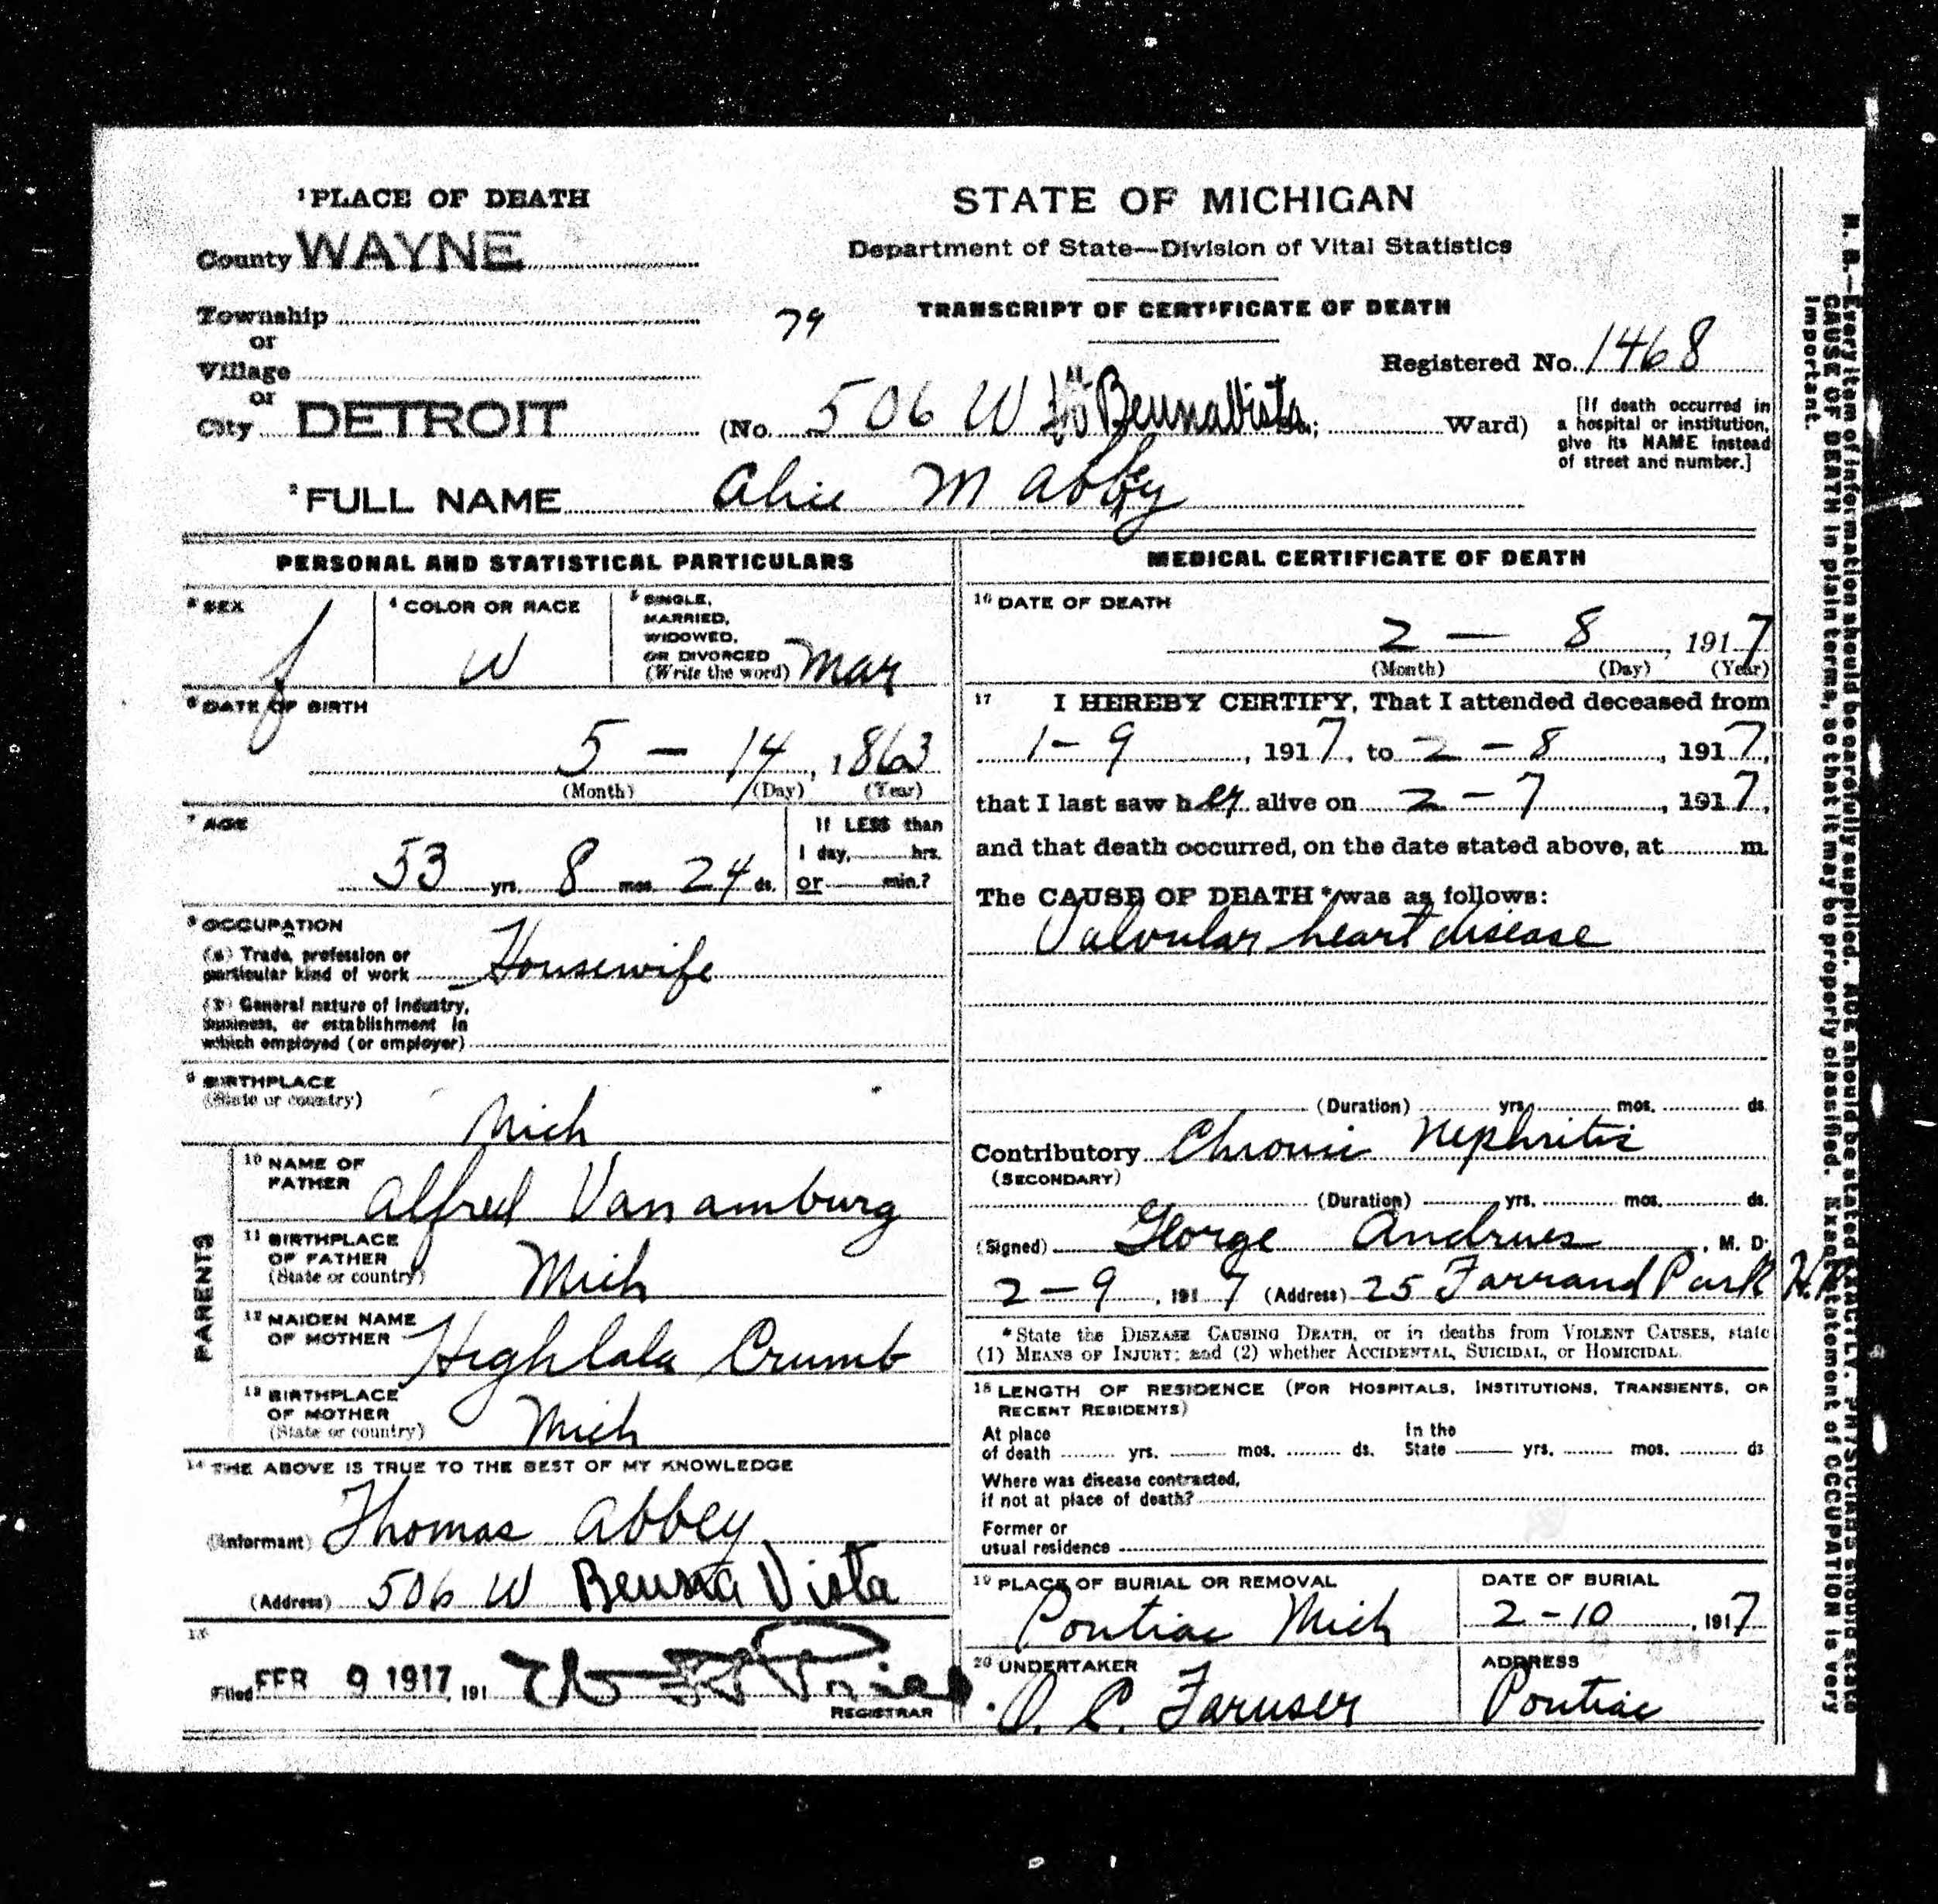 1 PLACE OF DEATH
County WAYNE
Township
or
Village
or
City DETROIT
STATE OF MICHIGAN
Department of State—Division of Vital Statistics
79
TRANSCRIPT OF CERTIFICATE OF DEATH
Registered No. 1468
(No. 506 W Beunavista St.; Ward)
[If death occurred in
a hospital or institution,
give its NAME instead
of street and number.]
2 FULL NAME Alice M Abbey
PERSONAL AND STATISTICAL PARTICULARS
3 SEX
f
4 COLOR OR RACE
W
5 SINGLE,
MARRIED,
WIDOWED,
OR DIVORCED
(Write the word) Mar
6 DATE OF BIRTH
5 — 14, 1863
(Month) (Day) (Year)
7 AGE
53 yrs. 8 mos. 24 ds.
If LESS than
1 day, hrs.
or min.?
8 OCCUPATION
(a) Trade, profession or
particular kind of work Housewife
(b) General nature of industry,
business, or establishment in
which employed (or employer)
9 BIRTHPLACE
(State or country)
Mich
PARENTS
10 NAME OF
FATHER
Alfred Vanamburg
11 BIRTHPLACE
OF FATHER
(State or country)
Mich
12 MAIDEN NAME
OF MOTHER
Highlala Crumb
13 BIRTHPLACE
OF MOTHER
(State or country)
Mich
14 THE ABOVE IS TRUE TO THE BEST OF MY KNOWLEDGE
(Informant) Thomas Abbey
(Address) 506 W Beuna Vista
15
Filed FEB 9 1917, 191
REGISTRAR
MEDICAL CERTIFICATE OF DEATH
16 DATE OF DEATH
2 — 8, 1917
(Month) (Day) (Year)
17 I HEREBY CERTIFY, That I attended deceased from
1 - 9, 1917, to 2 - 8, 1917,
that I last saw her alive on 2 - 7, 1917,
and that death occurred, on the date stated above, at m.
The CAUSE OF DEATH * was as follows:
Valvular heart disease
(Duration) yrs. mos. ds.
Contributory Chronic Nephritis
(SECONDARY)
(Duration) yrs. mos. ds.
(Signed) George Andrues, M. D.
2 - 9, 1917 (Address) 25 Farrand Park H.P.
*State the DISEASE CAUSING DEATH, or in deaths from VIOLENT CAUSES, state
(1) MEANS OF INJURY; and (2) whether ACCIDENTAL, SUICIDAL, or HOMICIDAL.
18 LENGTH OF RESIDENCE (FOR HOSPITALS, INSTITUTIONS, TRANSIENTS, OR
RECENT RESIDENTS)
At place
of death yrs. mos. ds.
In the
State yrs. mos. ds.
Where was disease contracted,
if not at place of death?
Former or
usual residence
19 PLACE OF BURIAL OR REMOVAL
Pontiac Mich
DATE OF BURIAL
2 - 10, 1917
20 UNDERTAKER
C. Faruser
ADDRESS
Pontiac
N. B.—Every item of information should be carefully supplied. AGE should be stated EXACTLY. PHYSICIANS should state
CAUSE OF DEATH in plain terms, so that it may be properly classified. Exact statement of OCCUPATION is very
important.